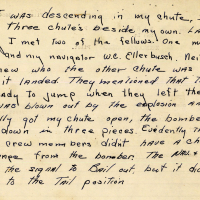 I was descending in my chute,
Three chute's beside my own.
I met two of the fellows. One
and my navigator W.C. Ellerbusch.
who the other chute was
it landed. They mentioned that
ady to jump when they left the
was blown out by the explosion and
lly got my chute open, the bomber
down in three pieces. Evedently
crew members didnt have a ch
from the bomber. The
the signal to Bail out, but it di
to the Tail position